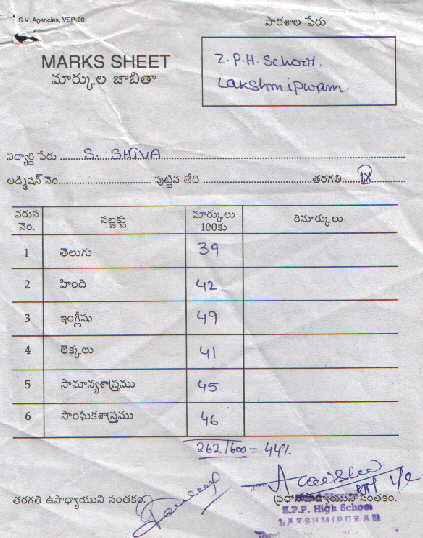 S.V. Agencies, VSP-20
పాఠశాల పేరు
MARKS SHEET
మార్కుల జాబితా
Z.P.H. School.
Lakshmipuram
విద్యార్థి పేరు S. SHIVA
అడ్మిషన్ నెం. పుట్టిన తేది తరగతి IX
వరుస నెం. సబ్జెక్టు మార్కులు 100కు రిమార్కులు
1 తెలుగు 39
2 హింది 42
3 ఇంగ్లీషు 49
4 లెక్కలు 41
5 సామాన్యశాస్త్రము 45
6 సాంఘికశాస్త్రము 46
262/600 = 44%
తరగతి ఉపాధ్యాయుని సంతకం ప్రధానోపాధ్యాయుని సంతకం.
High School
LAKSHMIPURAM